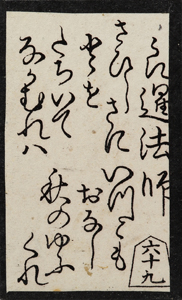 良暹法師
さひしさに
やとを
たちいて
なかむれハ
いつこも
おなし
秋のゆふ
くれ
六十九